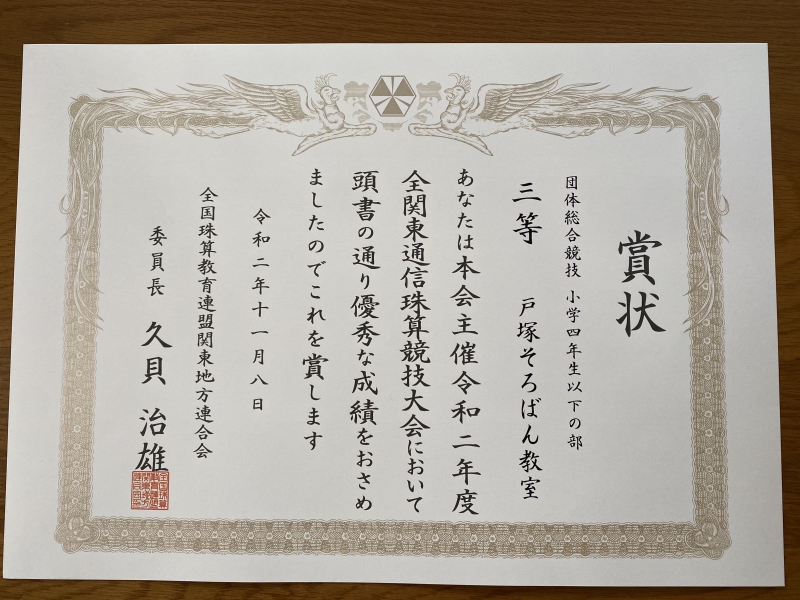 賞状
団体総合競技 小学四年生以下の部
三等 戸塚そろばん教室
あなたは本会主催令和二年度
全関東通信珠算競技大会において
頭書の通り優秀な成績をおさめ
ましたのでこれを賞します
令和二年十一月八日
全国珠算教育連盟関東地方連合会
委員長 久貝 治雄